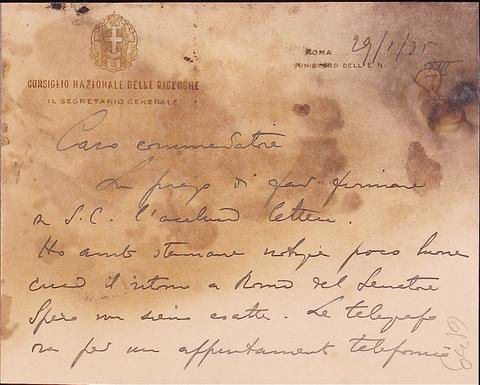 CONSIGLIO NAZIONALE DELLE RICERCHE
IL SEGRETARIO GENERALE
ROMA 29/1/35
MINISTERO DELL'E. N. XIII
Caro commendatore
La prego di far firmare
a S.E. l'acclusa lettera.
Ho avuto stamane notizie poco buone
circa il ritorno a Roma del Senatore
Spero non siano esatte. Le telegrafo
ora per un appuntamento telefonico